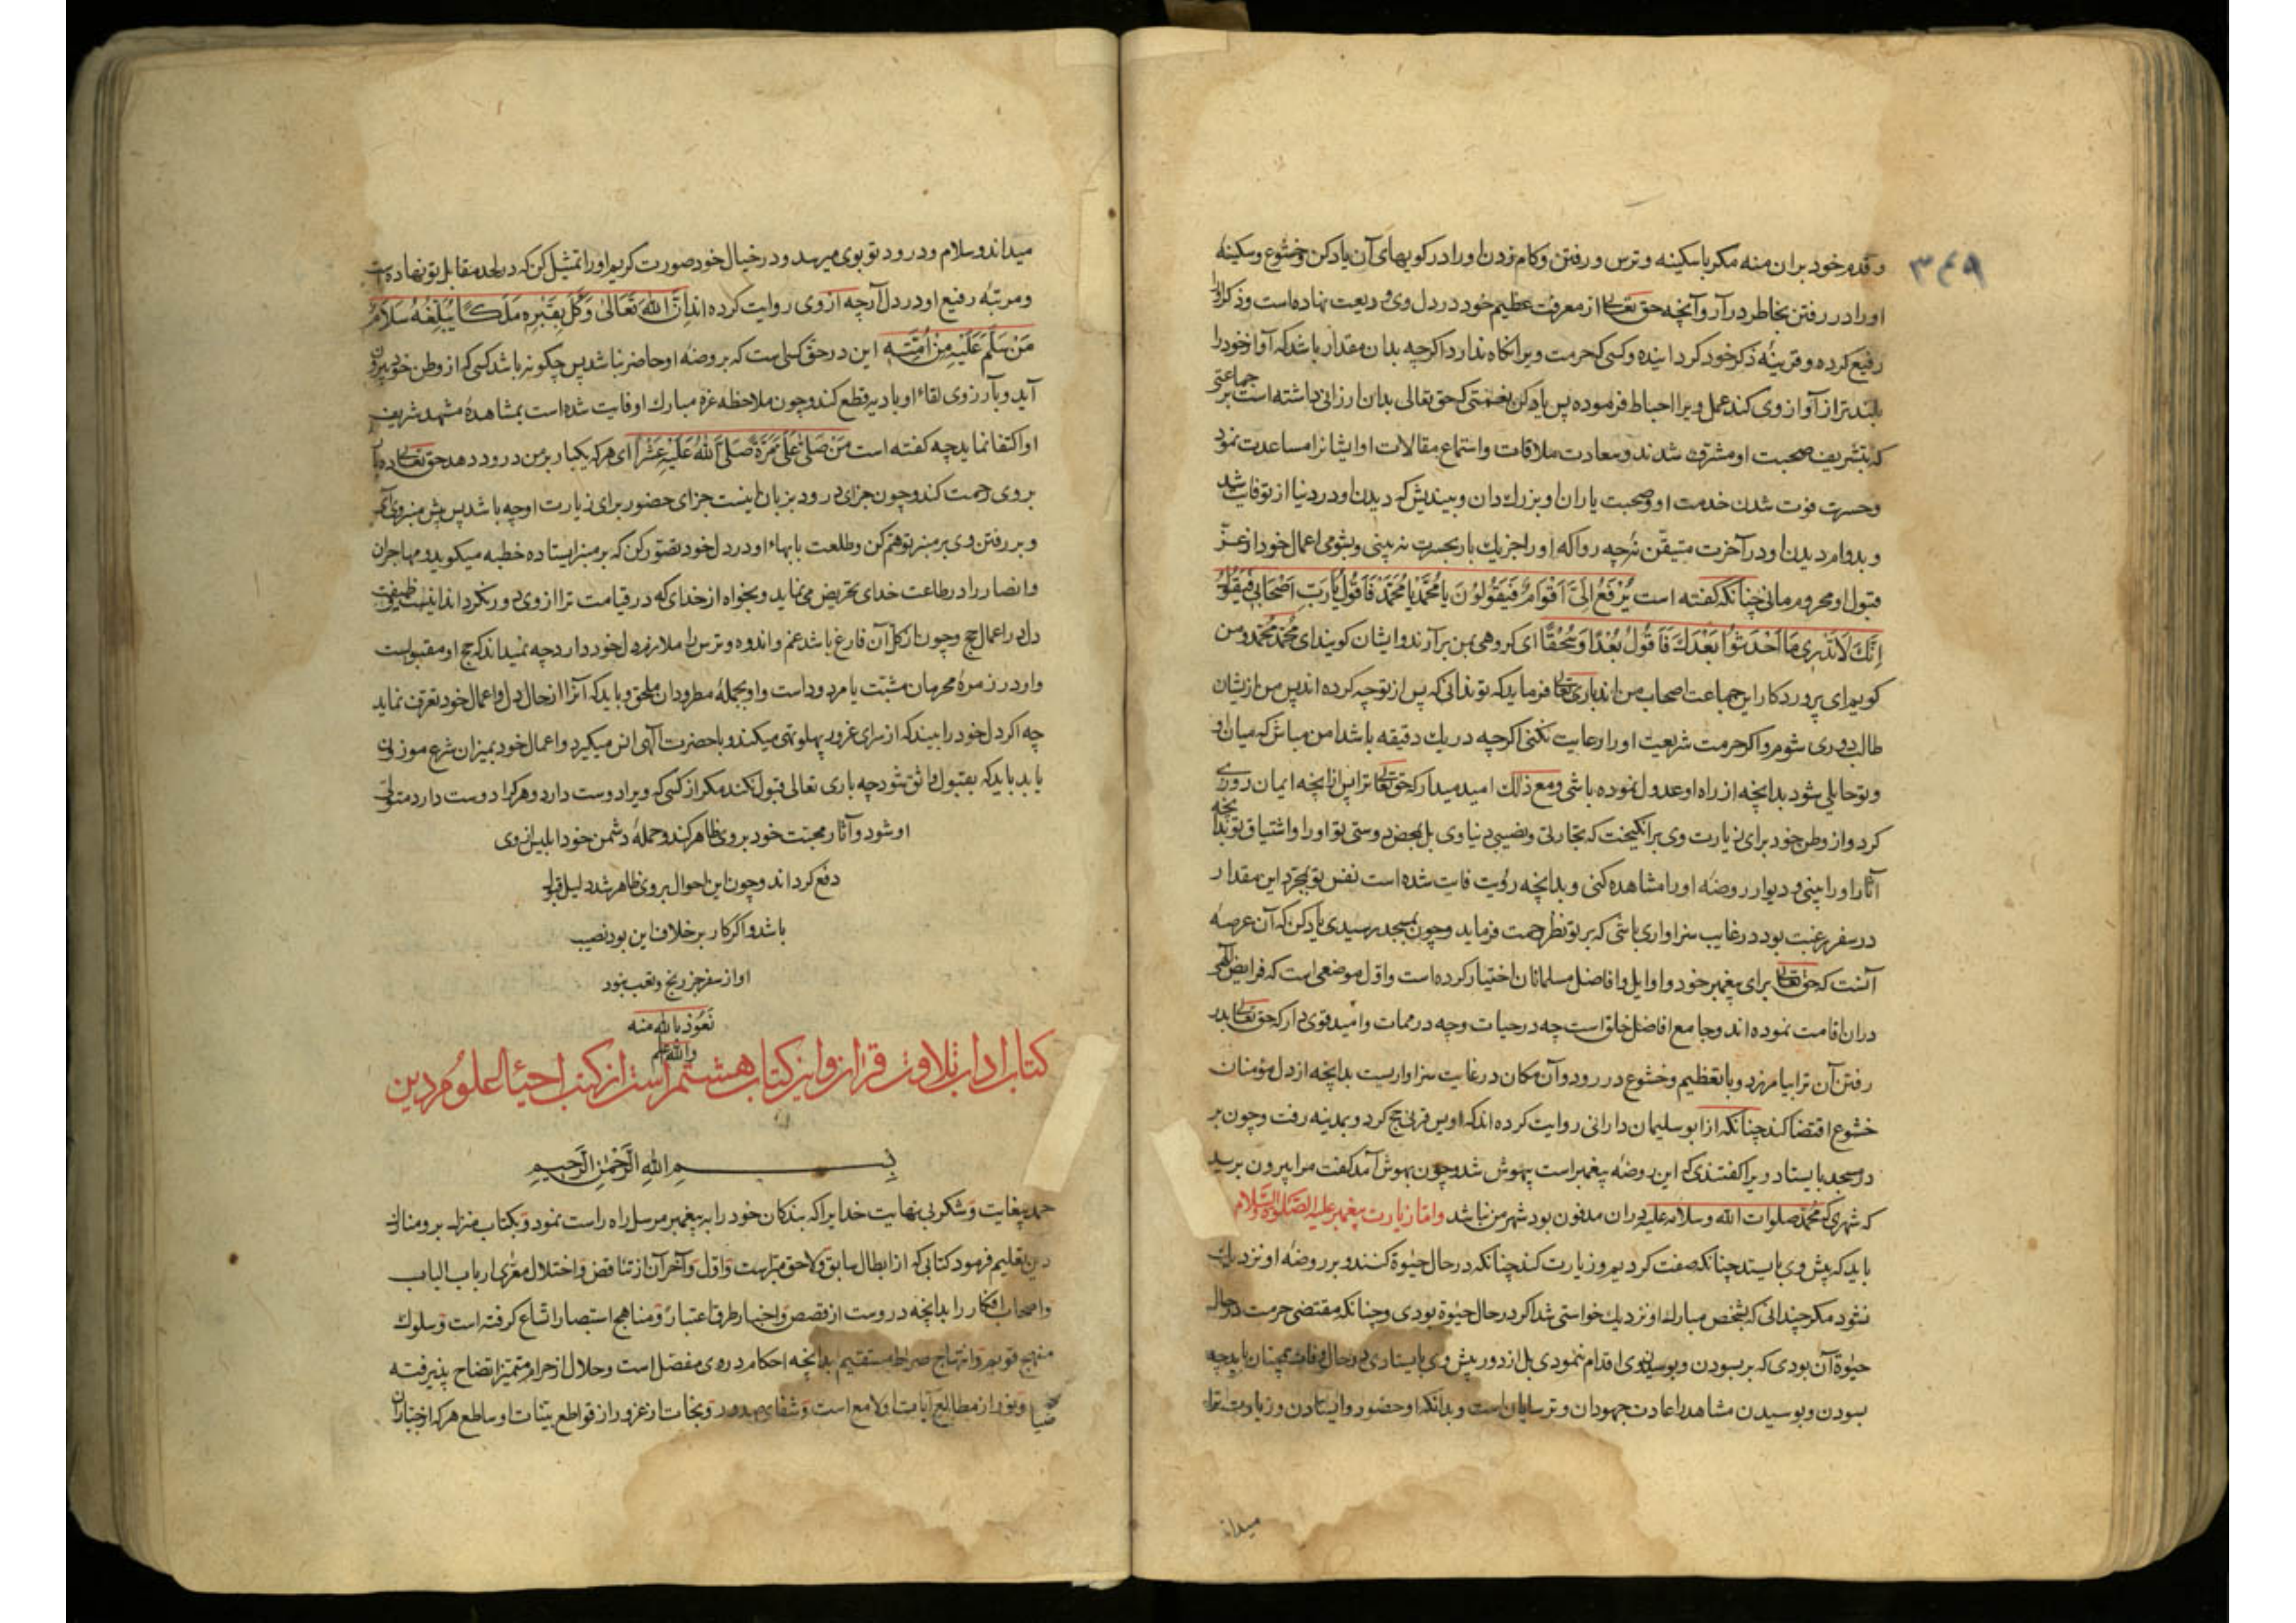 ۳۴۹
و قدم خود بران منه مکر باسکینه و ترس و رفتن وکام زدن او را در کویهای آن یاد کن و خشوع و سکینه
او را در رفتن بخاطر در آر و آنچه حق تعالی از معرفت عظیم خود در دل وی ودیعت نهاده است و ذکر او را
رفیع کرده و قرینهٔ ذکر خود کردانیده و کسی که حرمت ویرا نکاه ندارد اکرچه بدان مقدار باشد که آواز خود را
بلندتر از آواز وی کند عمل ویرا احباط فرموده پس یاد کن نعمتی که حق تعالی بدان ارزانی داشته است بر جماعتی
که بتشریف صحبت او مشرف شدند و سعادت ملاقات و استماع مقالات او ایشانرا مساعدت نمود
و حسرت فوت شدن خدمت او و صحبت یاران او بزرك دان و بیندیش که دیدن او در دنیا از تو فایت شد
و بدوام دیدن او در آخرت متیقن نهٔ چه روا که او را جز یك بار بحسرت نه بینی و بشومی اعمال خود از عز
قبول او محروم مانی چنانکه کفته است یُرْفَعُ اِلَیَّ اَقْوَامٌ فَیَقُولُونَ یَا مُحَمَّدُ یَا مُحَمَّدُ فَاَقُولُ یَارَبِّ اَصْحَابِی فَیَقُولُ
اِنَّكَ لَاتَدْرِی مَا اَحْدَثُوا بَعْدَكَ فَاَقُولُ بُعْدًا وَسُحْقًا ای کروهی بمن برآرند و ایشان کویند ای محمد محمد و من
کویم ای پروردکار این جماعت اصحاب من اند باری تعالی فرماید که تو ندانی که پس از تو چه کرده اند پس من ازیشان
طالب دوری شوم و اکر حرمت شریعت او را رعایت نکنی اکرچه در یك دقیقه باشد امن مباش که میان او
و تو حایلی شود بدانچه از راه او عدول نموده باشی و مع ذلك امید میدار که حق تعالی ترا پس ازانچه ایمان روزی
کرد و از وطن خود برای زیارت وی برانکیخت که تجارتی و نصیبی دنیاوی بل بمحض دوستی تو او را و اشتیاق تو بدانچه
آثار او را بینی و دیوار روضهٔ او را مشاهده کنی و بدانچه رؤیت فایت شده است نفس تو بمجرد این مقدار
در سفر رغبت بود در غایب سزاواری باشی که بر تو نظر رحمت فرماید و چون بمسجد رسیدی یاد کن که آن عرصهٔ
آنست که حق تعالی برای پیغمبر خود و اوایل و افاضل مسلمانان اختیار کرده است و اول موضعی است که فرایض الهی
دران اقامت نموده اند و جامع افاضل خلق است چه در حیات و چه در ممات و امید قوی دار که حق تعالی بدر
رفتن آن ترا بیامرزد و با تعظیم و خشوع در رود و آن مکان در غایت سزاواریست بدانچه از دل مؤمنان
خشوع اقتضا کند چنانکه از ابو سلیمان دارانی روایت کرده اند که اویس قرنی حج کرد و بمدینه رفت و چون بر
در مسجد بایستاد ویرا کفتند که این روضهٔ پیغمبر است بیهوش شد و چون بهوش آمد کفت مرا بیرون برید
که شهری که محمد صلوات الله و سلامه علیه دران مدفون بود شهر من نباشد و اما زیارت پیغمبر علیه الصلوة و السلام
باید که پیش وی بایستد چنانکه صفت کردیم و زیارت کند چنانکه در حال حیوة کنند و بر روضهٔ او نزدیك
نشود مکر چندانی که بشخص مبارك او نزدیك خواستی شد اکر در حال حیوة بودی و چنانکه مقتضی حرمت در حال
حیوة آن بودی که بر بسودن و بوسیدن وی اقدام ننمودی بل از دور پیش وی بایستادی در حال وفات همچنان باید چه
بسودن و بوسیدن مشاهد را عادت جهودان و ترسایان است و بدانکه او حضور و ایستادن و زیارت ترا
میداند
میداند و سلام و درود تو بوی میرسد و در خیال خود صورت کریم او را تمثیل کن که در لحد مقابل تو نهاده است
و مرتبهٔ رفیع او در دل آر چه از وی روایت کرده اند اِنَّ اللّٰهَ تَعَالَی وَکَّلَ بِقَبْرِهٖ مَلَکًا یُبَلِّغُهُ سَلَامَ
مَنْ سَلَّمَ عَلَیْهِ مِنْ اُمَّتِهٖ این در حق کسی است که بروضهٔ او حاضر نباشد پس چکونه باشد کسی که از وطن خود بیرون
آید و بآرزوی لقاء او بادیه قطع کند و چون ملاحظه غرهٔ مبارك او فایت شده است بمشاهدهٔ مشهد شریف
او اکتفا نماید چه کفته است مَنْ صَلَّی عَلَیَّ مَرَّةً صَلَّی اللّٰهُ عَلَیْهِ عَشْرًا ای هر که یکبار بر من درود دهد حق تعالی ده بار
بر وی رحمت کند و چون جزای درود بزبان اینست جزای حضور برای زیارت او چه باشد پس پیش منبر وی آی
و بر رفتن وی بر منبر توهم کن و طلعت با بهاء او در دل خود تصور کن که بر منبر ایستاده خطبه میکوید و مهاجران
و انصار را در طاعت خدای تحریض می نماید و بخواه از خدای که در قیامت ترا از وی دور نکرداند اینست وظیفت
دل در اعمال حج و چون از کل آن فارغ باشد غم و اندوه و ترس را ملازم دل خود دارد چه نمیداند که حج او مقبولست
و او در زمرهٔ محرمان مثبت یا مردود است و او بجملهٔ مطرودان ملحق و باید که آنرا از حال دل و اعمال خود تعرف نماید
چه اکر دل خود را بیند که از سرای غرور پهلو تهی میکند و باحضرت آلهی انس میکیرد و اعمال خود بمیزان شرع موزون
یابد باید که بقبول واثق شود چه باری تعالی قبول نکند مکر از کسی که ویرا دوست دارد و هر کرا دوست دارد متولی
او شود و آثار محبت خود بر وی ظاهر کند و حملهٔ دشمن خود ابلیس از وی
دفع کرداند و چون این احوال بر وی ظاهر شد دلیل قبول
باشد و اکر کار بر خلاف این بود نصیب
او از سفر جز رنج و تعب نبود
نَعُوذ بالله منه
والله اعلم
کتاب اداب تلاوت قران و این کتاب هشتم است از کتب احیاء العلوم دین
بسم الله الرحمن الرحیم
حمد بیغایت و شکر بی نهایت خدایرا که بندکان خود را به پیغمبر مرسل راه راست نمود و بکتاب منزل برو منازل
دین تعلیم فرمود کتابی که از ابطال سابق و لاحق مبراست و اول و آخر آن از تناقض و اختلال معری ارباب الباب
و اصحاب افکار را بدانچه دروست از قصص و اخبار طرق اعتبار و مناهج استبصار اتساع کرفته است و سلوك
منهج قویم و انتهاج صراط مستقیم بدانچه احکام در وی مفصل است و حلال از حرام متمیز اتضاح پذیرفته
ضیا و نور از مطالع آیات او لامع است و شفای صدور و نجات از غرور از قواطع بینات او ساطع هر که از جباران